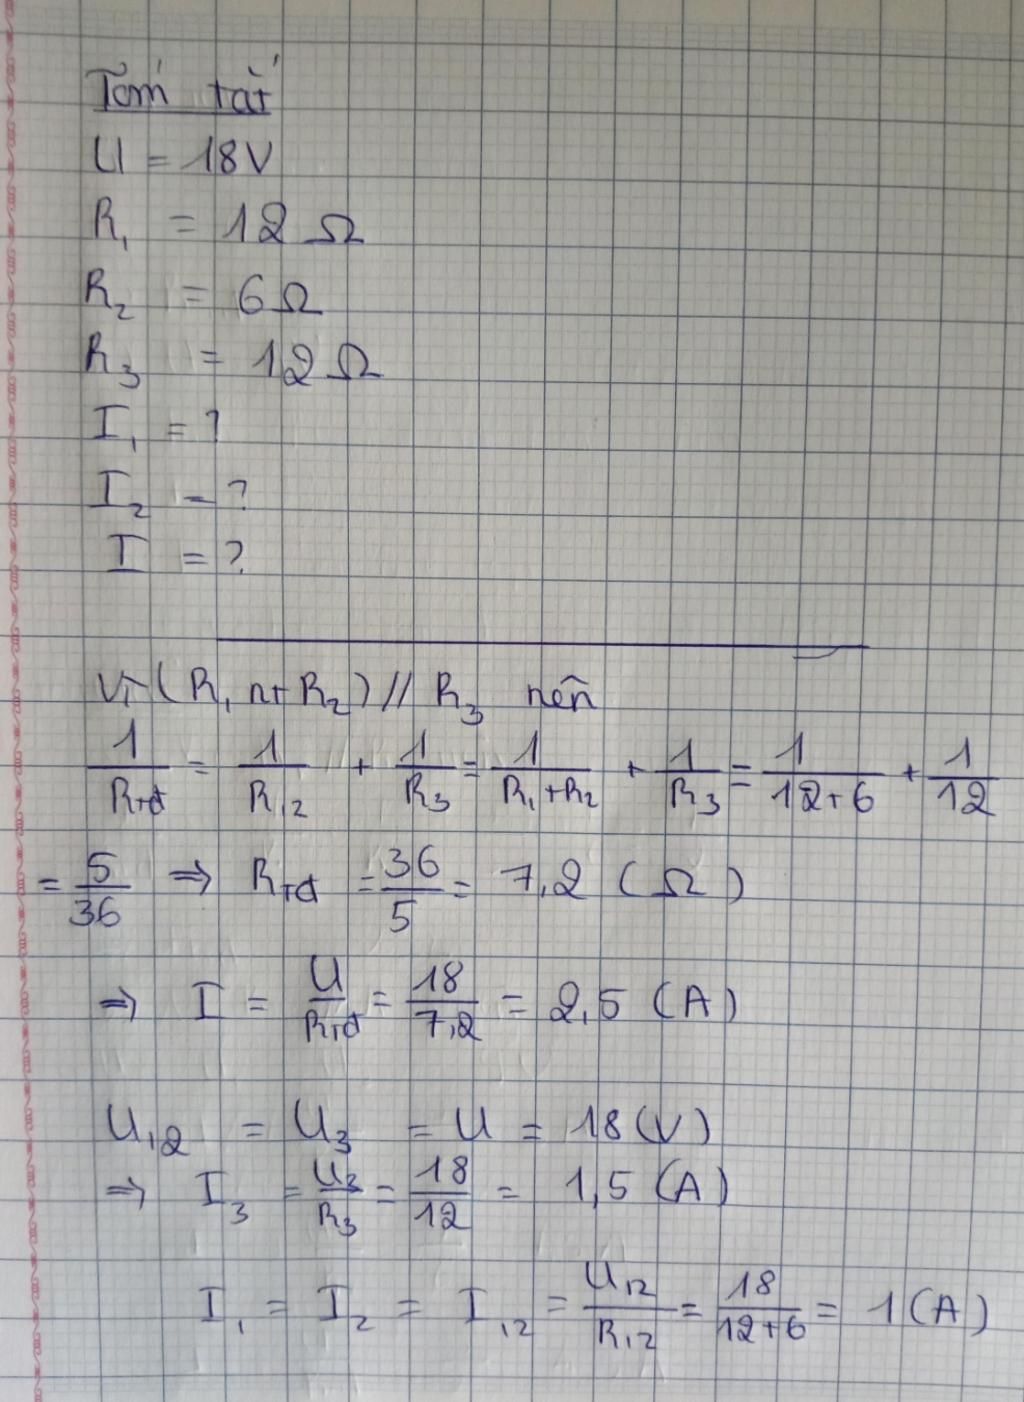 Tóm tắt
U = 18V
R₁ = 12 Ω
R₂ = 6 Ω
R₃ = 12 Ω
I₁ = ?
I₂ = ?
I = ?
Vì (R₁ nt R₂) // R₃ nên
1/Rtđ = 1/R₁₂ + 1/R₃ = 1/(R₁+R₂) + 1/R₃ = 1/(12+6) + 1/12
= 5/36 ⇒ Rtđ = 36/5 = 7,2 (Ω)
⇒ I = U/Rtđ = 18/7,2 = 2,5 (A)
U₁₂ = U₃ = U = 18 (V)
⇒ I₃ = U₃/R₃ = 18/12 = 1,5 (A)
I₁ = I₂ = I₁₂ = U₁₂/R₁₂ = 18/(12+6) = 1 (A)